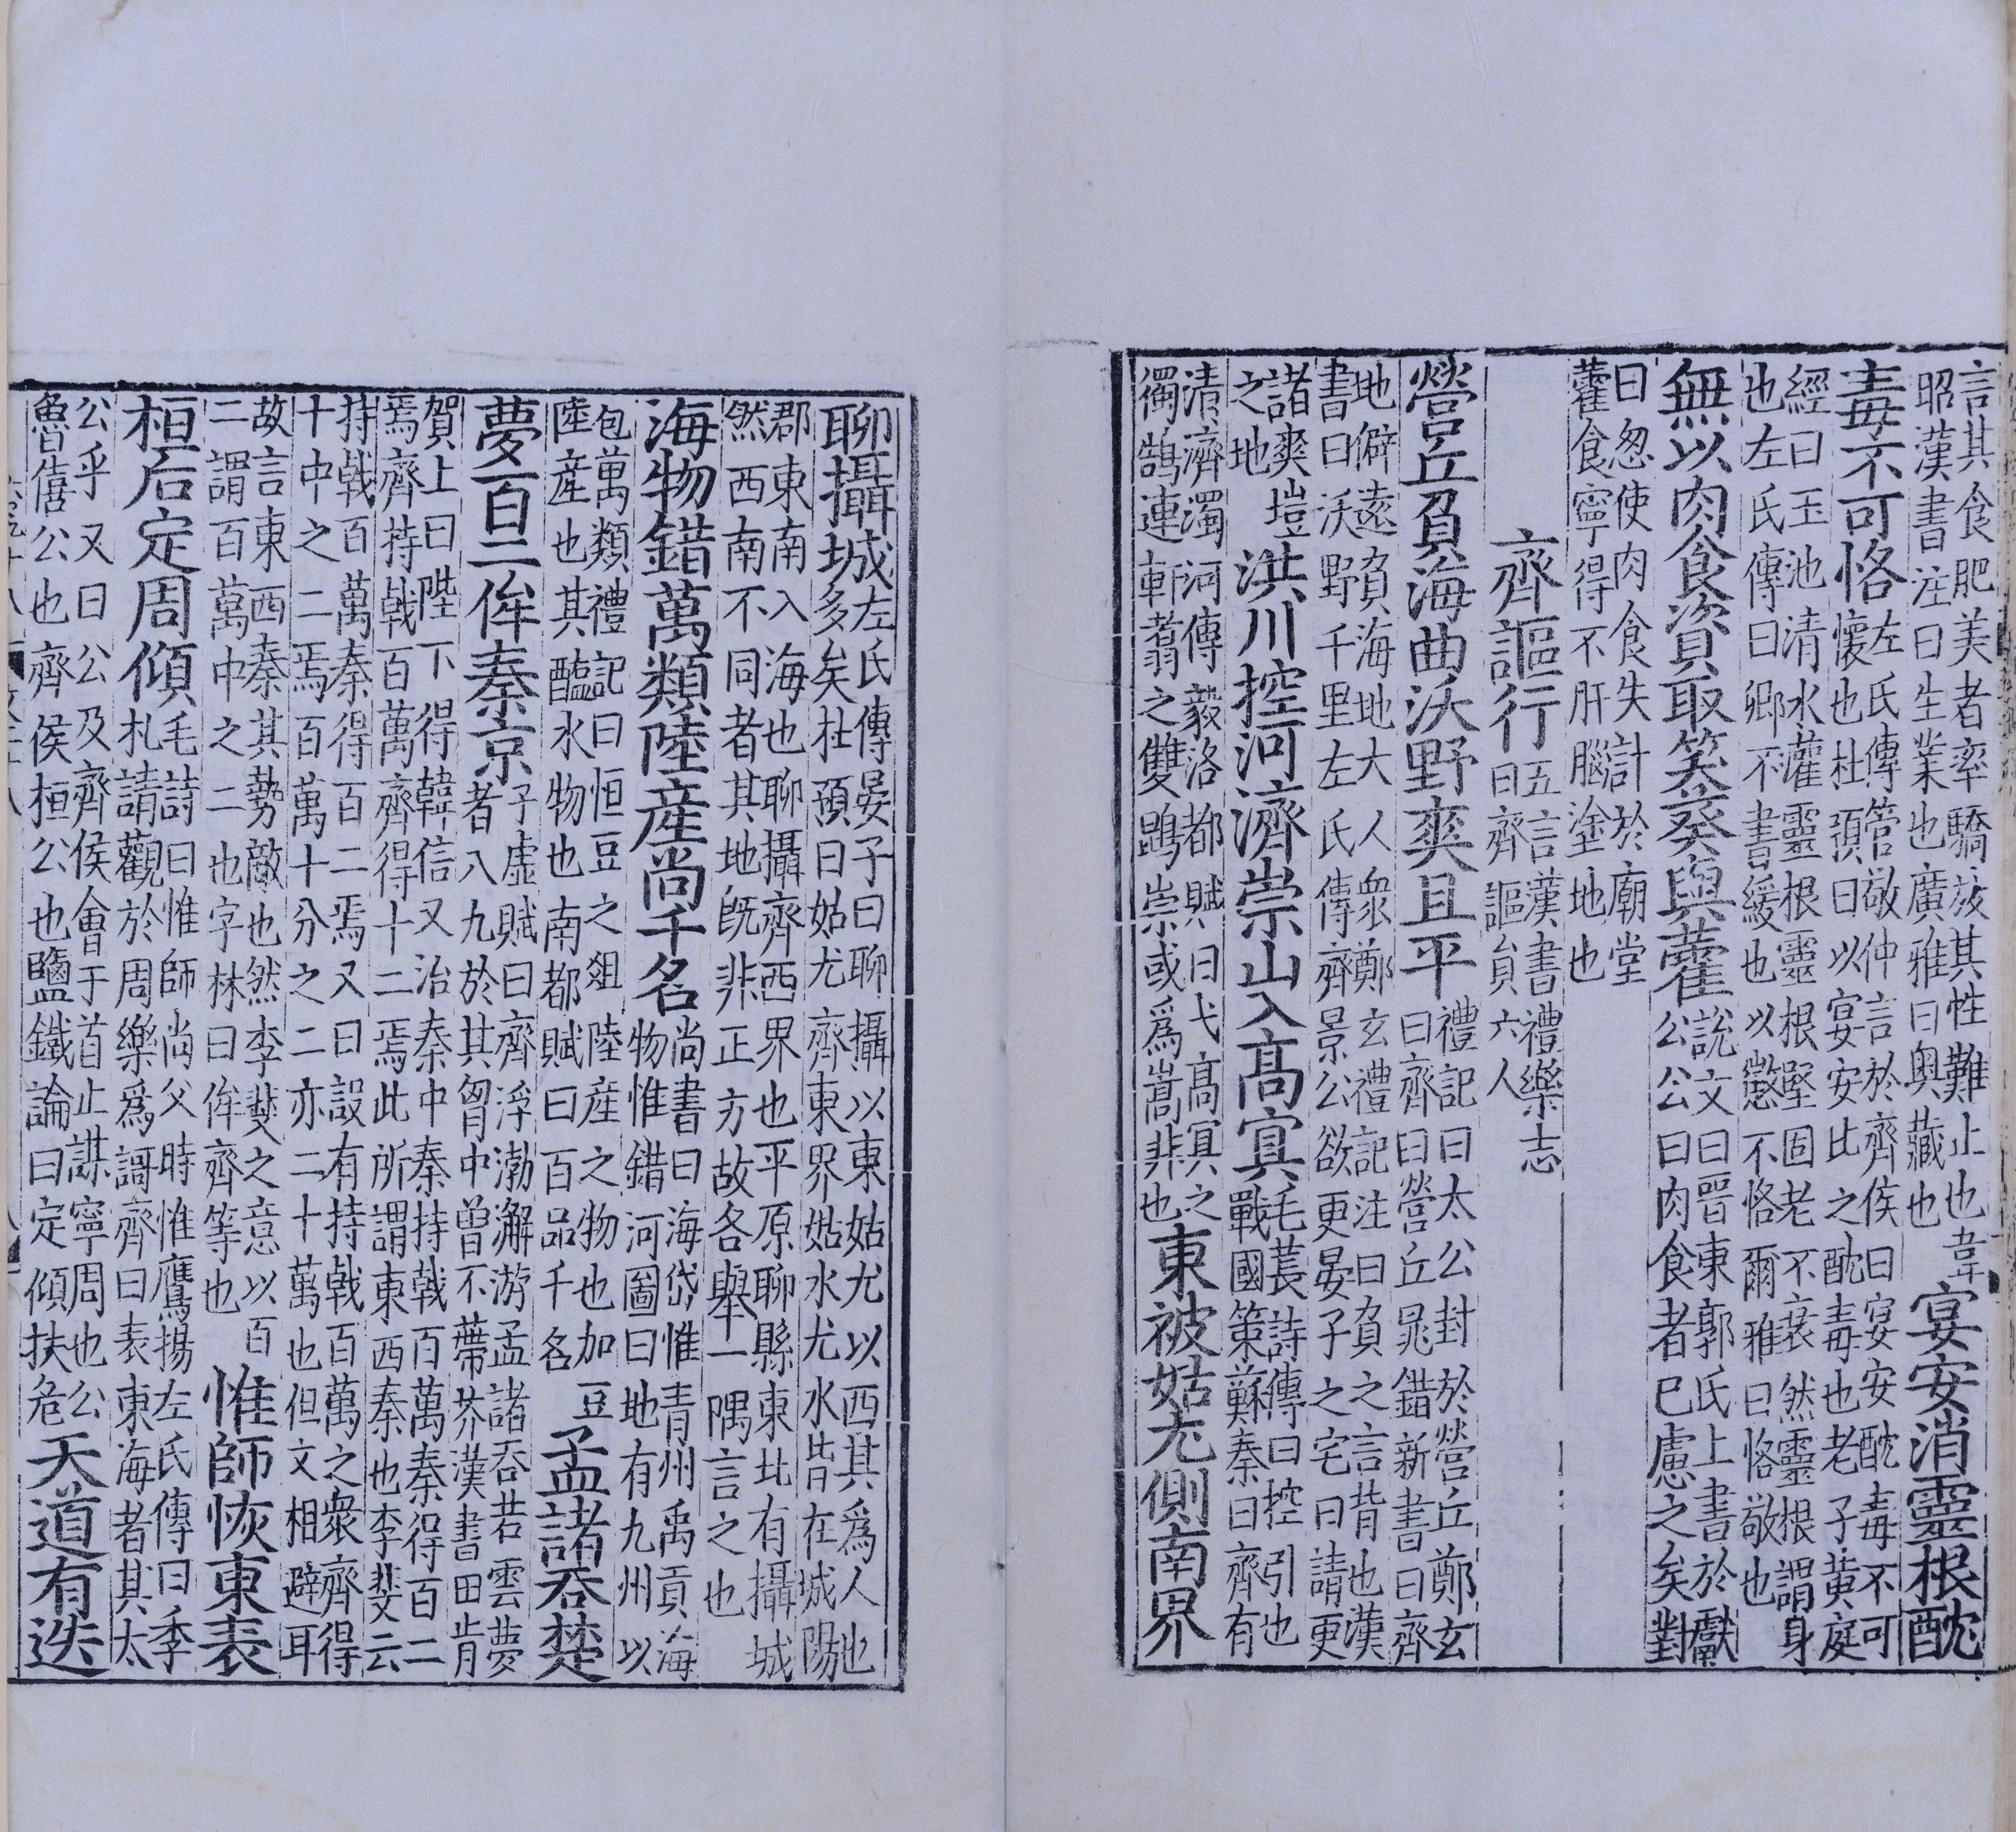 言其食肥美者率驕放其性難止也韋
昭漢書注曰生業也廣雅曰奧藏也
宴安消靈根酖
毒不可恪
左氏傳管敬仲言於齊侯曰宴安酖毒不可
懷也杜預曰以宴安比之酖毒也老子黃庭
經曰玉池清水灌靈根靈根堅固老不衰然靈根謂身
也左氏傳曰卿不書緩也以懲不恪爾雅曰恪敬也
無以肉食資取笑葵與藿
說文曰晋東郭氏上書於獻
公公曰肉食者已慮之矣對
曰忽使肉食失計於廟堂
藿食寧得不肝腦塗地也
齊謳行
五言漢書禮樂志
曰齊謳員六人
營丘負海曲沃野爽且平
禮記曰太公封於營丘鄭玄
曰齊曰營丘晁錯新書曰齊
地僻遠負海地大人衆鄭玄禮記注曰負之言背也漢
書曰沃野千里左氏傳齊景公欲更晏子之宅曰請更
諸爽塏
之地
洪川控河濟崇山入高冥
毛萇詩傳曰控引也
戰國策蘇秦曰齊有
清濟濁河傳毅洛都賦曰弋高冥之
獨鵠連軒翥之雙鵾崇或爲嵩非也
東被姑尤側南界
聊攝城
左氏傳晏子曰聊攝以東姑尤以西其爲人也
多矣杜預曰姑尤齊東界姑水尤水皆在城陽
郡東南入海也聊攝齊西界也平原聊縣東北有攝城
然西南不同者其地旣非正方故各舉一隅言之也
海物錯萬類陸産尚千名
尚書曰海岱惟青州禹貢海
物惟錯河圖曰地有九州以
包萬類禮記曰恒豆之俎陸産之物也加豆
陸産也其醢水物也南都賦曰百品千名
孟諸吞楚
夢百二侔秦京
子虛賦曰齊浮渤澥游孟諸吞若雲夢
者八九於其胷中曾不蔕芥漢書田肯
賀上曰陛下得韓信又治秦中秦持戟百萬秦得百二
焉齊持戟百萬齊得十二焉此所謂東西秦也李斐云
持戟百萬秦得百二焉又曰設有持戟百萬之衆齊得
十中之二焉百萬十分之二亦二十萬也但文相避耳
故言東西秦其勢敵也然李斐之意以百
二謂百萬中之二也字林曰侔齊等也
惟師恢東表
桓后定周傾
毛詩曰惟師尚父時惟鷹揚左氏傳曰季
札請觀於周樂爲謌齊曰表東海者其太
公乎又曰公及齊侯會于首止謀寧周也公
魯僖公也齊侯桓公也鹽鐵論曰定傾扶危
天道有迭